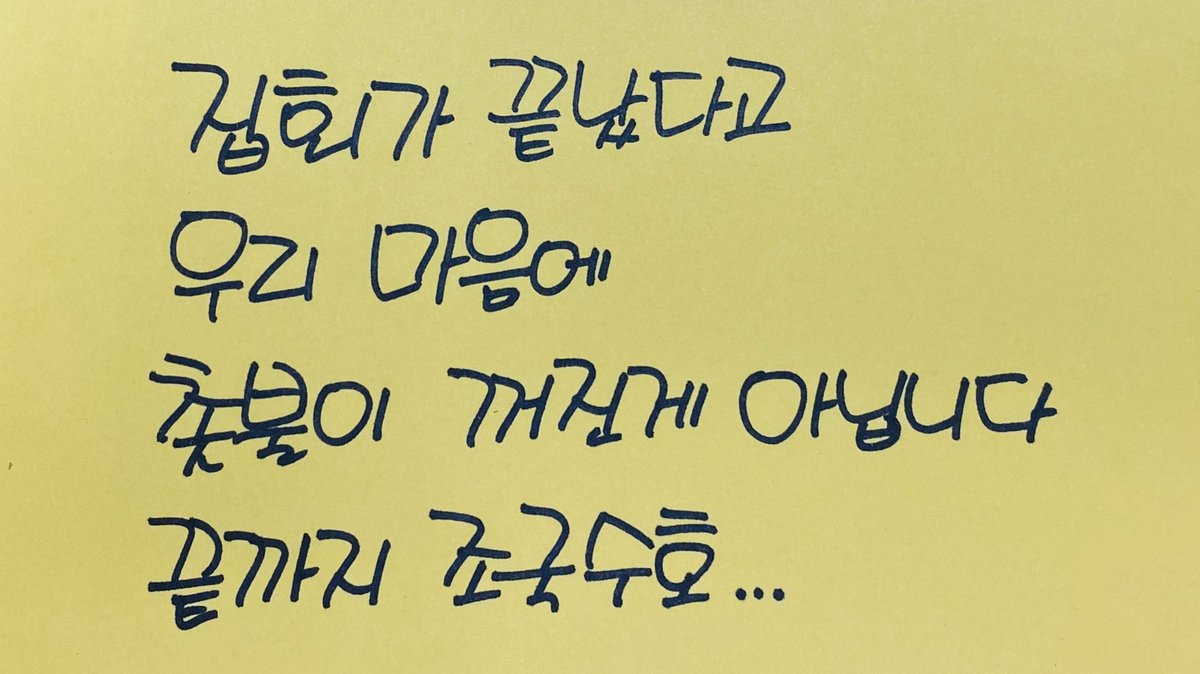 집회가 끝났다고
우리 마음에
촛불이 꺼진게 아닙니다
끝까지 조국수호...